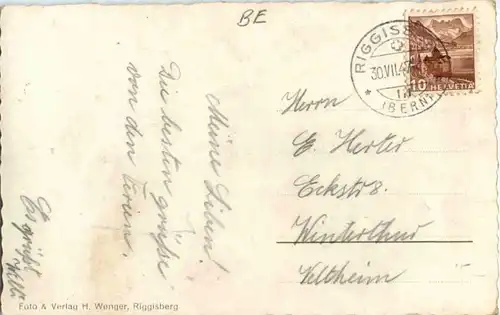 BE
RIGGISB
30.VII.4
(BERN)
10 HELVETIA
Meine Lieben!
Die besten Grüße
von den Ferien.
Es grüßt
Willi
Herrn
E. Herter
Eckstr 8.
Winterthur
Veltheim
Foto & Verlag H. Wenger, Riggisberg